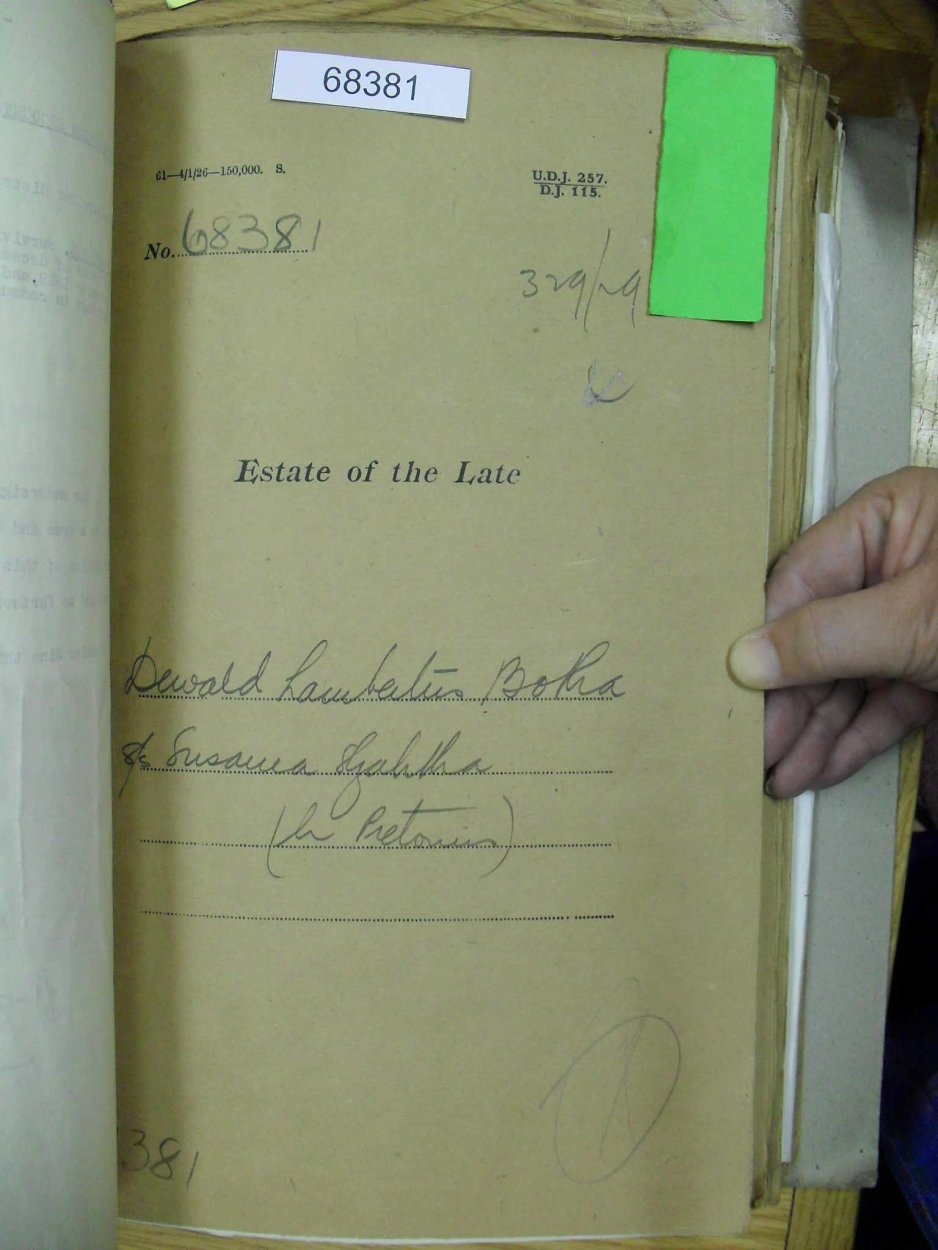 68381
61—4/1/26—150,000. S.
U.D.J. 257.
D.J. 115.
No. 68381
329/29
Estate of the Late
Dewald Lambertus Botha
& s/s Susanna
(b Pretorius)
381